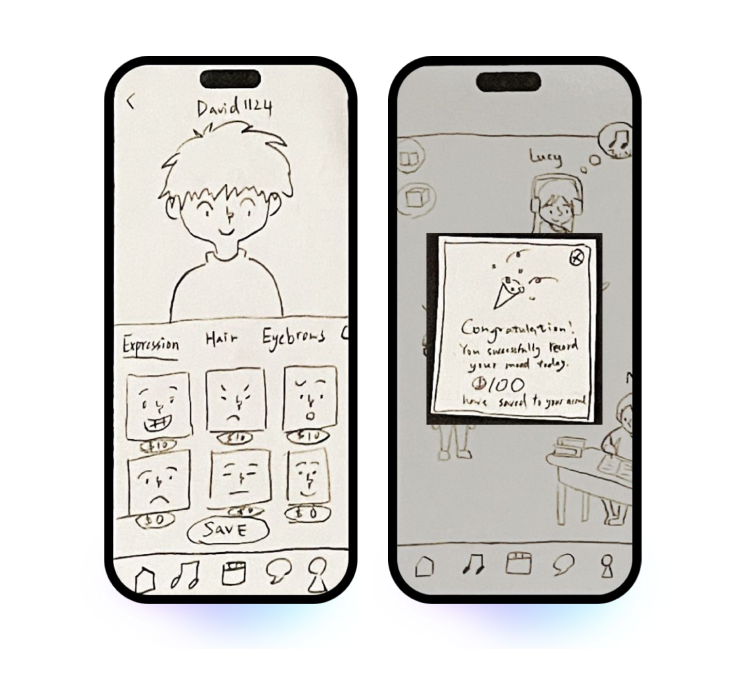 David1124
Expression Hair Eyebrows
$10 $10 $10
$0 $0 $0
SAVE
Lucy
Congratulation!
You successfully record
your mood today.
$100
have saved to your